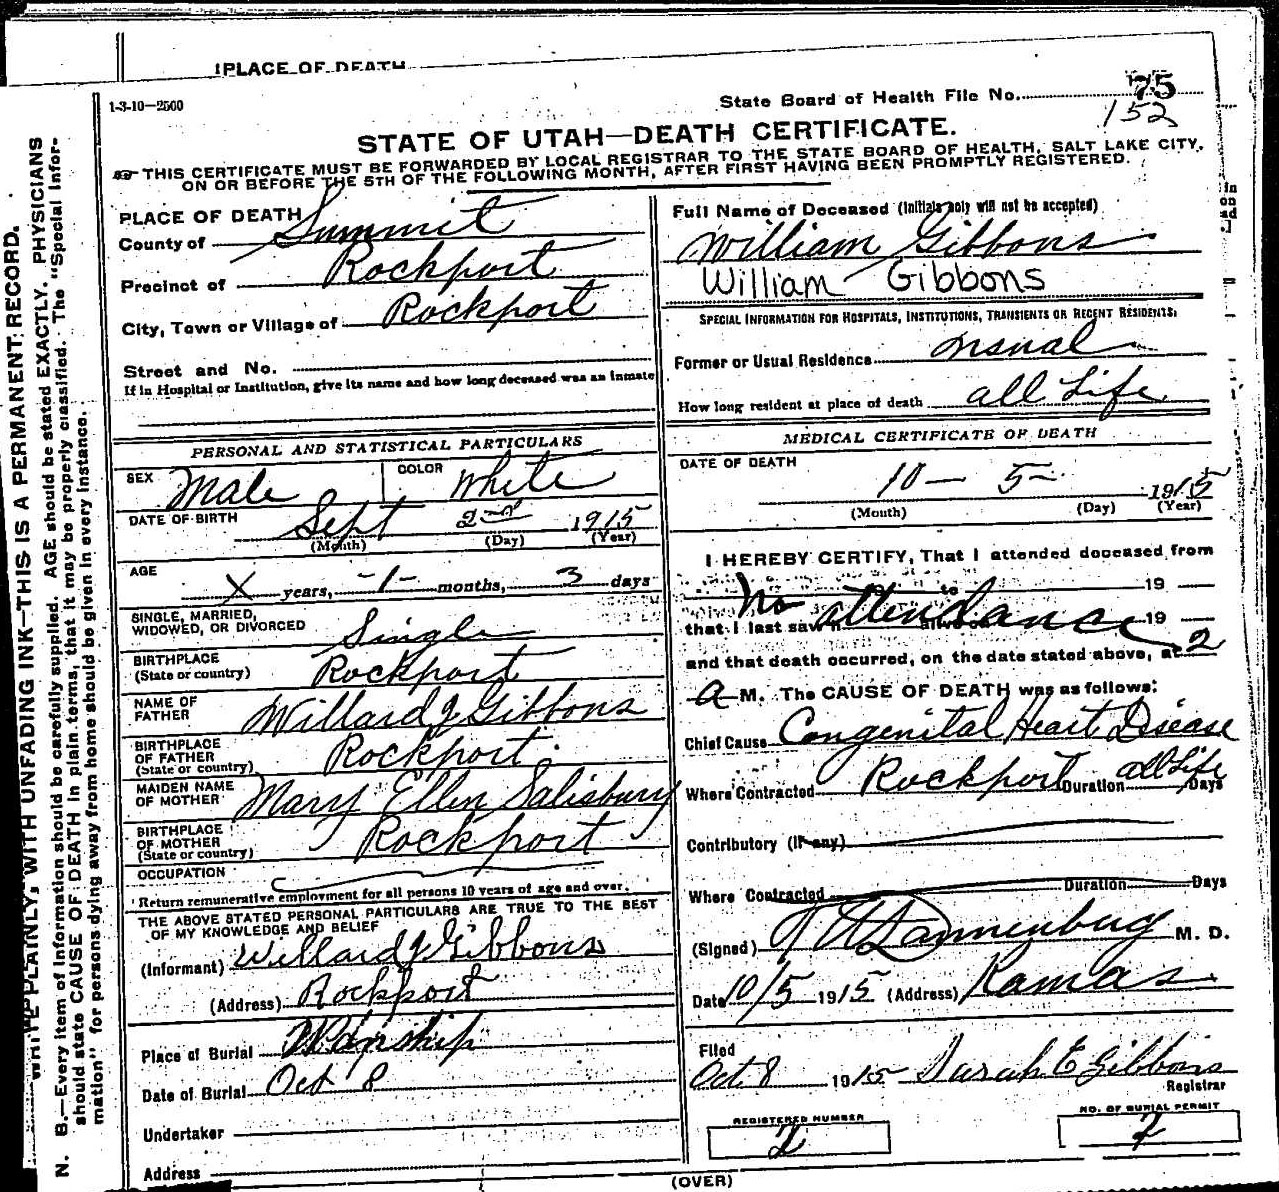 PLACE OF DEATH
1-3-10—2500
State Board of Health File No. 75
152
STATE OF UTAH—DEATH CERTIFICATE.
THIS CERTIFICATE MUST BE FORWARDED BY LOCAL REGISTRAR TO THE STATE BOARD OF HEALTH, SALT LAKE CITY,
ON OR BEFORE THE 5TH OF THE FOLLOWING MONTH, AFTER FIRST HAVING BEEN PROMPTLY REGISTERED.
WRITE PLAINLY, WITH UNFADING INK—THIS IS A PERMANENT RECORD.
N. B.—Every item of information should be carefully supplied. AGE should be stated EXACTLY. PHYSICIANS
should state CAUSE OF DEATH in plain terms, that it may be properly classified. The "Special Infor-
mation" for persons dying away from home should be given in every instance.
PLACE OF DEATH
County of Summit
Precinct of Rockport
City, Town or Village of Rockport
Street and No.
If in Hospital or Institution, give its name and how long deceased was an inmate
PERSONAL AND STATISTICAL PARTICULARS
SEX Male COLOR White
DATE OF BIRTH Sept 2nd 1915
(Month) (Day) (Year)
AGE X years, -1- months, 3 days
SINGLE, MARRIED,
WIDOWED, OR DIVORCED Single
BIRTHPLACE
(State or country) Rockport
NAME OF
FATHER Willard J Gibbons
BIRTHPLACE
OF FATHER
(State or country) Rockport.
MAIDEN NAME
OF MOTHER Mary Ellen Salisbury
BIRTHPLACE
OF MOTHER
(State or country) Rockport
OCCUPATION
Return remunerative employment for all persons 10 years of age and over.
THE ABOVE STATED PERSONAL PARTICULARS ARE TRUE TO THE BEST
OF MY KNOWLEDGE AND BELIEF
(Informant) Willard J Gibbons
(Address) Rockport
Place of Burial Wanship
Date of Burial Oct 8
Undertaker
Address
Full Name of Deceased (Initials only will not be accepted)
William Gibbons
William Gibbons
SPECIAL INFORMATION FOR HOSPITALS, INSTITUTIONS, TRANSIENTS OR RECENT RESIDENTS:
Former or Usual Residence usual
How long resident at place of death all Life
MEDICAL CERTIFICATE OF DEATH
DATE OF DEATH
10 — 5 — 1915
(Month) (Day) (Year)
I HEREBY CERTIFY, That I attended deceased from
No to 19
that I last saw h attendance alive on 19
and that death occurred, on the date stated above, at 2
a M. The CAUSE OF DEATH was as follows:
Chief Cause Congenital Heart Disease
Where Contracted Rockport Duration all Life Days
Contributory (if any)
Where Contracted Duration Days
(Signed) Dannenburg M. D.
Date 10/5 1915 (Address) Kamas
Filed
Oct 8 1915 Sarah E Gibbons
Registrar
REGISTERED NUMBER
2
NO. OF BURIAL PERMIT
2
(OVER)